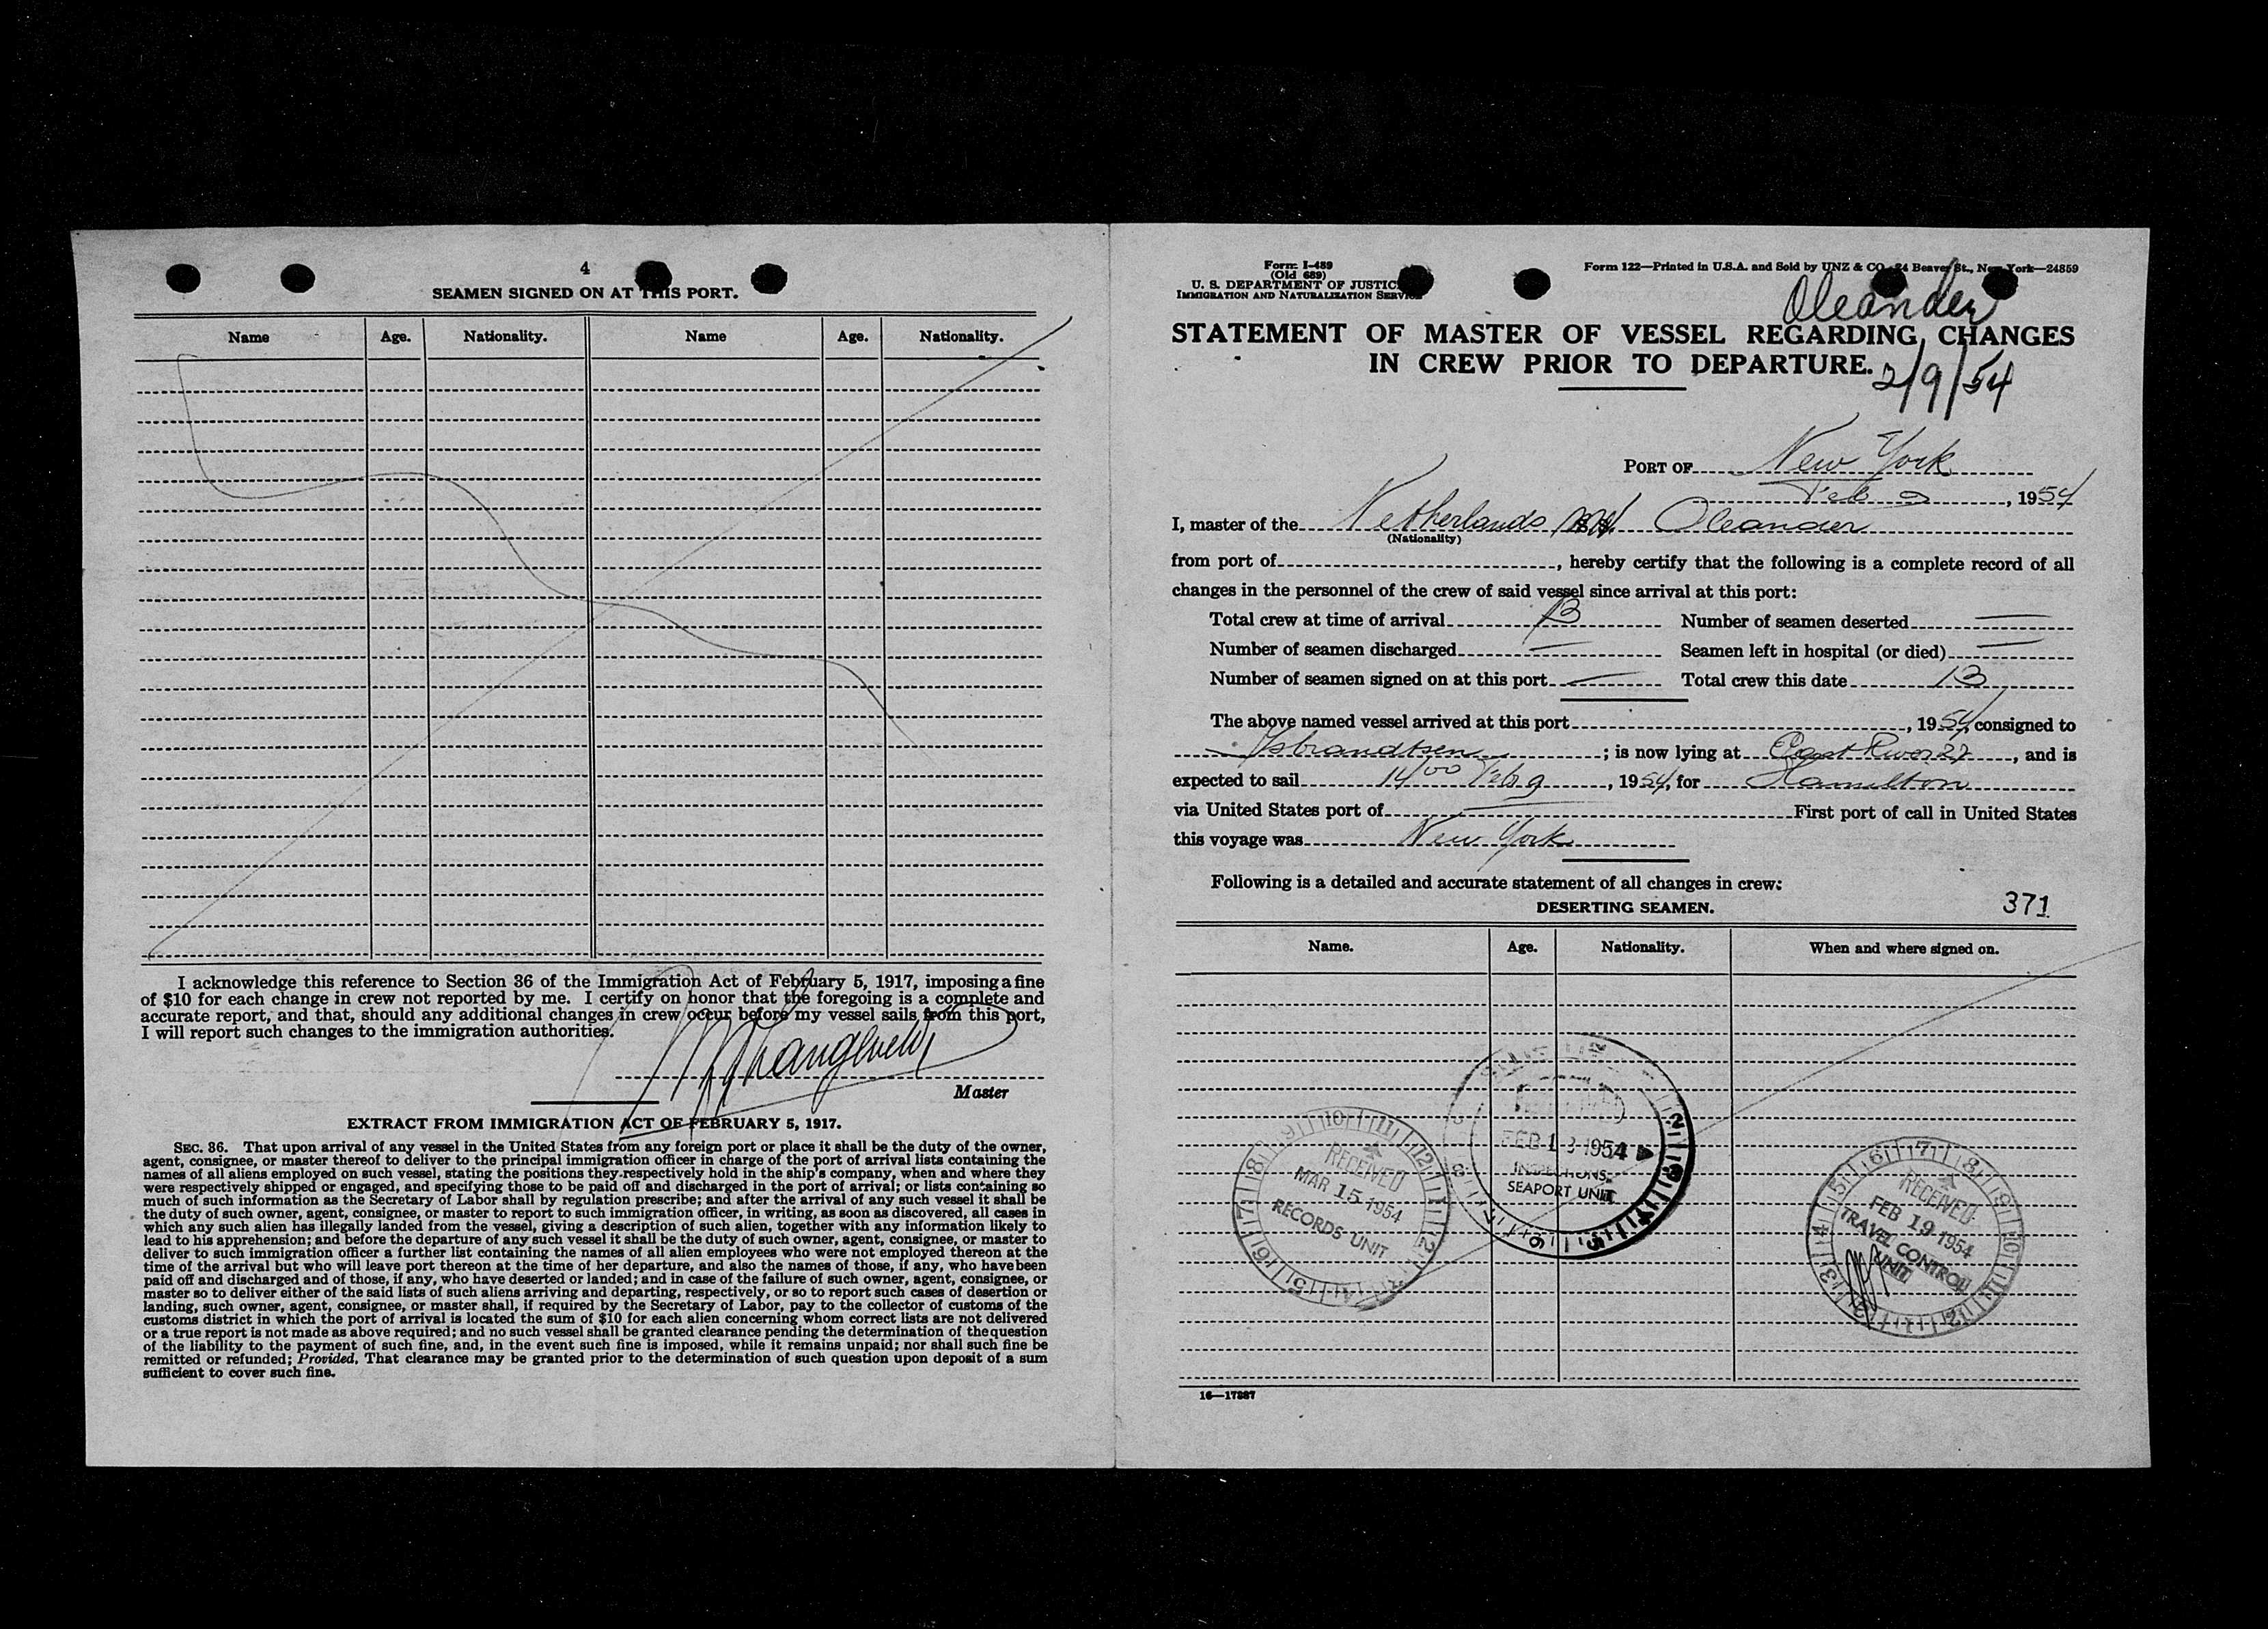 4
SEAMEN SIGNED ON AT THIS PORT.
Name Age. Nationality. Name Age. Nationality.
I acknowledge this reference to Section 36 of the Immigration Act of February 5, 1917, imposing a fine
of $10 for each change in crew not reported by me. I certify on honor that the foregoing is a complete and
accurate report, and that, should any additional changes in crew occur before my vessel sails from this port,
I will report such changes to the immigration authorities.
Master
EXTRACT FROM IMMIGRATION ACT OF FEBRUARY 5, 1917.
SEC. 36. That upon arrival of any vessel in the United States from any foreign port or place it shall be the duty of the owner,
agent, consignee, or master thereof to deliver to the principal immigration officer in charge of the port of arrival lists containing the
names of all aliens employed on such vessel, stating the positions they respectively hold in the ship's company, when and where they
were respectively shipped or engaged, and specifying those to be paid off and discharged in the port of arrival; or lists containing so
much of such information as the Secretary of Labor shall by regulation prescribe; and after the arrival of any such vessel it shall be
the duty of such owner, agent, consignee, or master to report to such immigration officer, in writing, as soon as discovered, all cases in
which any such alien has illegally landed from the vessel, giving a description of such alien, together with any information likely to
lead to his apprehension; and before the departure of any such vessel it shall be the duty of such owner, agent, consignee, or master to
deliver to such immigration officer a further list containing the names of all alien employees who were not employed thereon at the
time of the arrival but who will leave port thereon at the time of her departure, and also the names of those, if any, who have been
paid off and discharged and of those, if any, who have deserted or landed; and in case of the failure of such owner, agent, consignee, or
master so to deliver either of the said lists of such aliens arriving and departing, respectively, or so to report such cases of desertion or
landing, such owner, agent, consignee, or master shall, if required by the Secretary of Labor, pay to the collector of customs of the
customs district in which the port of arrival is located the sum of $10 for each alien concerning whom correct lists are not delivered
or a true report is not made as above required; and no such vessel shall be granted clearance pending the determination of the question
of the liability to the payment of such fine, and, in the event such fine is imposed, while it remains unpaid; nor shall such fine be
remitted or refunded; Provided, That clearance may be granted prior to the determination of such question upon deposit of a sum
sufficient to cover such fine.
Form I-489
(Old 689)
U. S. DEPARTMENT OF JUSTICE
IMMIGRATION AND NATURALIZATION SERVICE
Form 122—Printed in U.S.A. and Sold by UNZ & CO., 24 Beaver St., New York—24859
Oleander
STATEMENT OF MASTER OF VESSEL REGARDING CHANGES
IN CREW PRIOR TO DEPARTURE.
2/9/54
PORT OF New York
Feb 9, 1954
I, master of the Netherlands M.V. Oleander
(Nationality)
from port of , hereby certify that the following is a complete record of all
changes in the personnel of the crew of said vessel since arrival at this port:
Total crew at time of arrival 13 Number of seamen deserted —
Number of seamen discharged — Seamen left in hospital (or died) —
Number of seamen signed on at this port — Total crew this date 13
The above named vessel arrived at this port , 1954, consigned to
Isbrandtsen ; is now lying at East River 27, and is
expected to sail 14 00 Feb 9, 1954, for Hamilton
via United States port of — First port of call in United States
this voyage was New York
Following is a detailed and accurate statement of all changes in crew:
DESERTING SEAMEN.
371
Name. Age. Nationality. When and where signed on.
RECEIVED
MAR 15 1954
RECORDS UNIT
1954
INSPECTIONS
SEAPORT UNIT
RECEIVED
FEB 19 1954
TRAVEL CONTROL
UNIT
16—17887